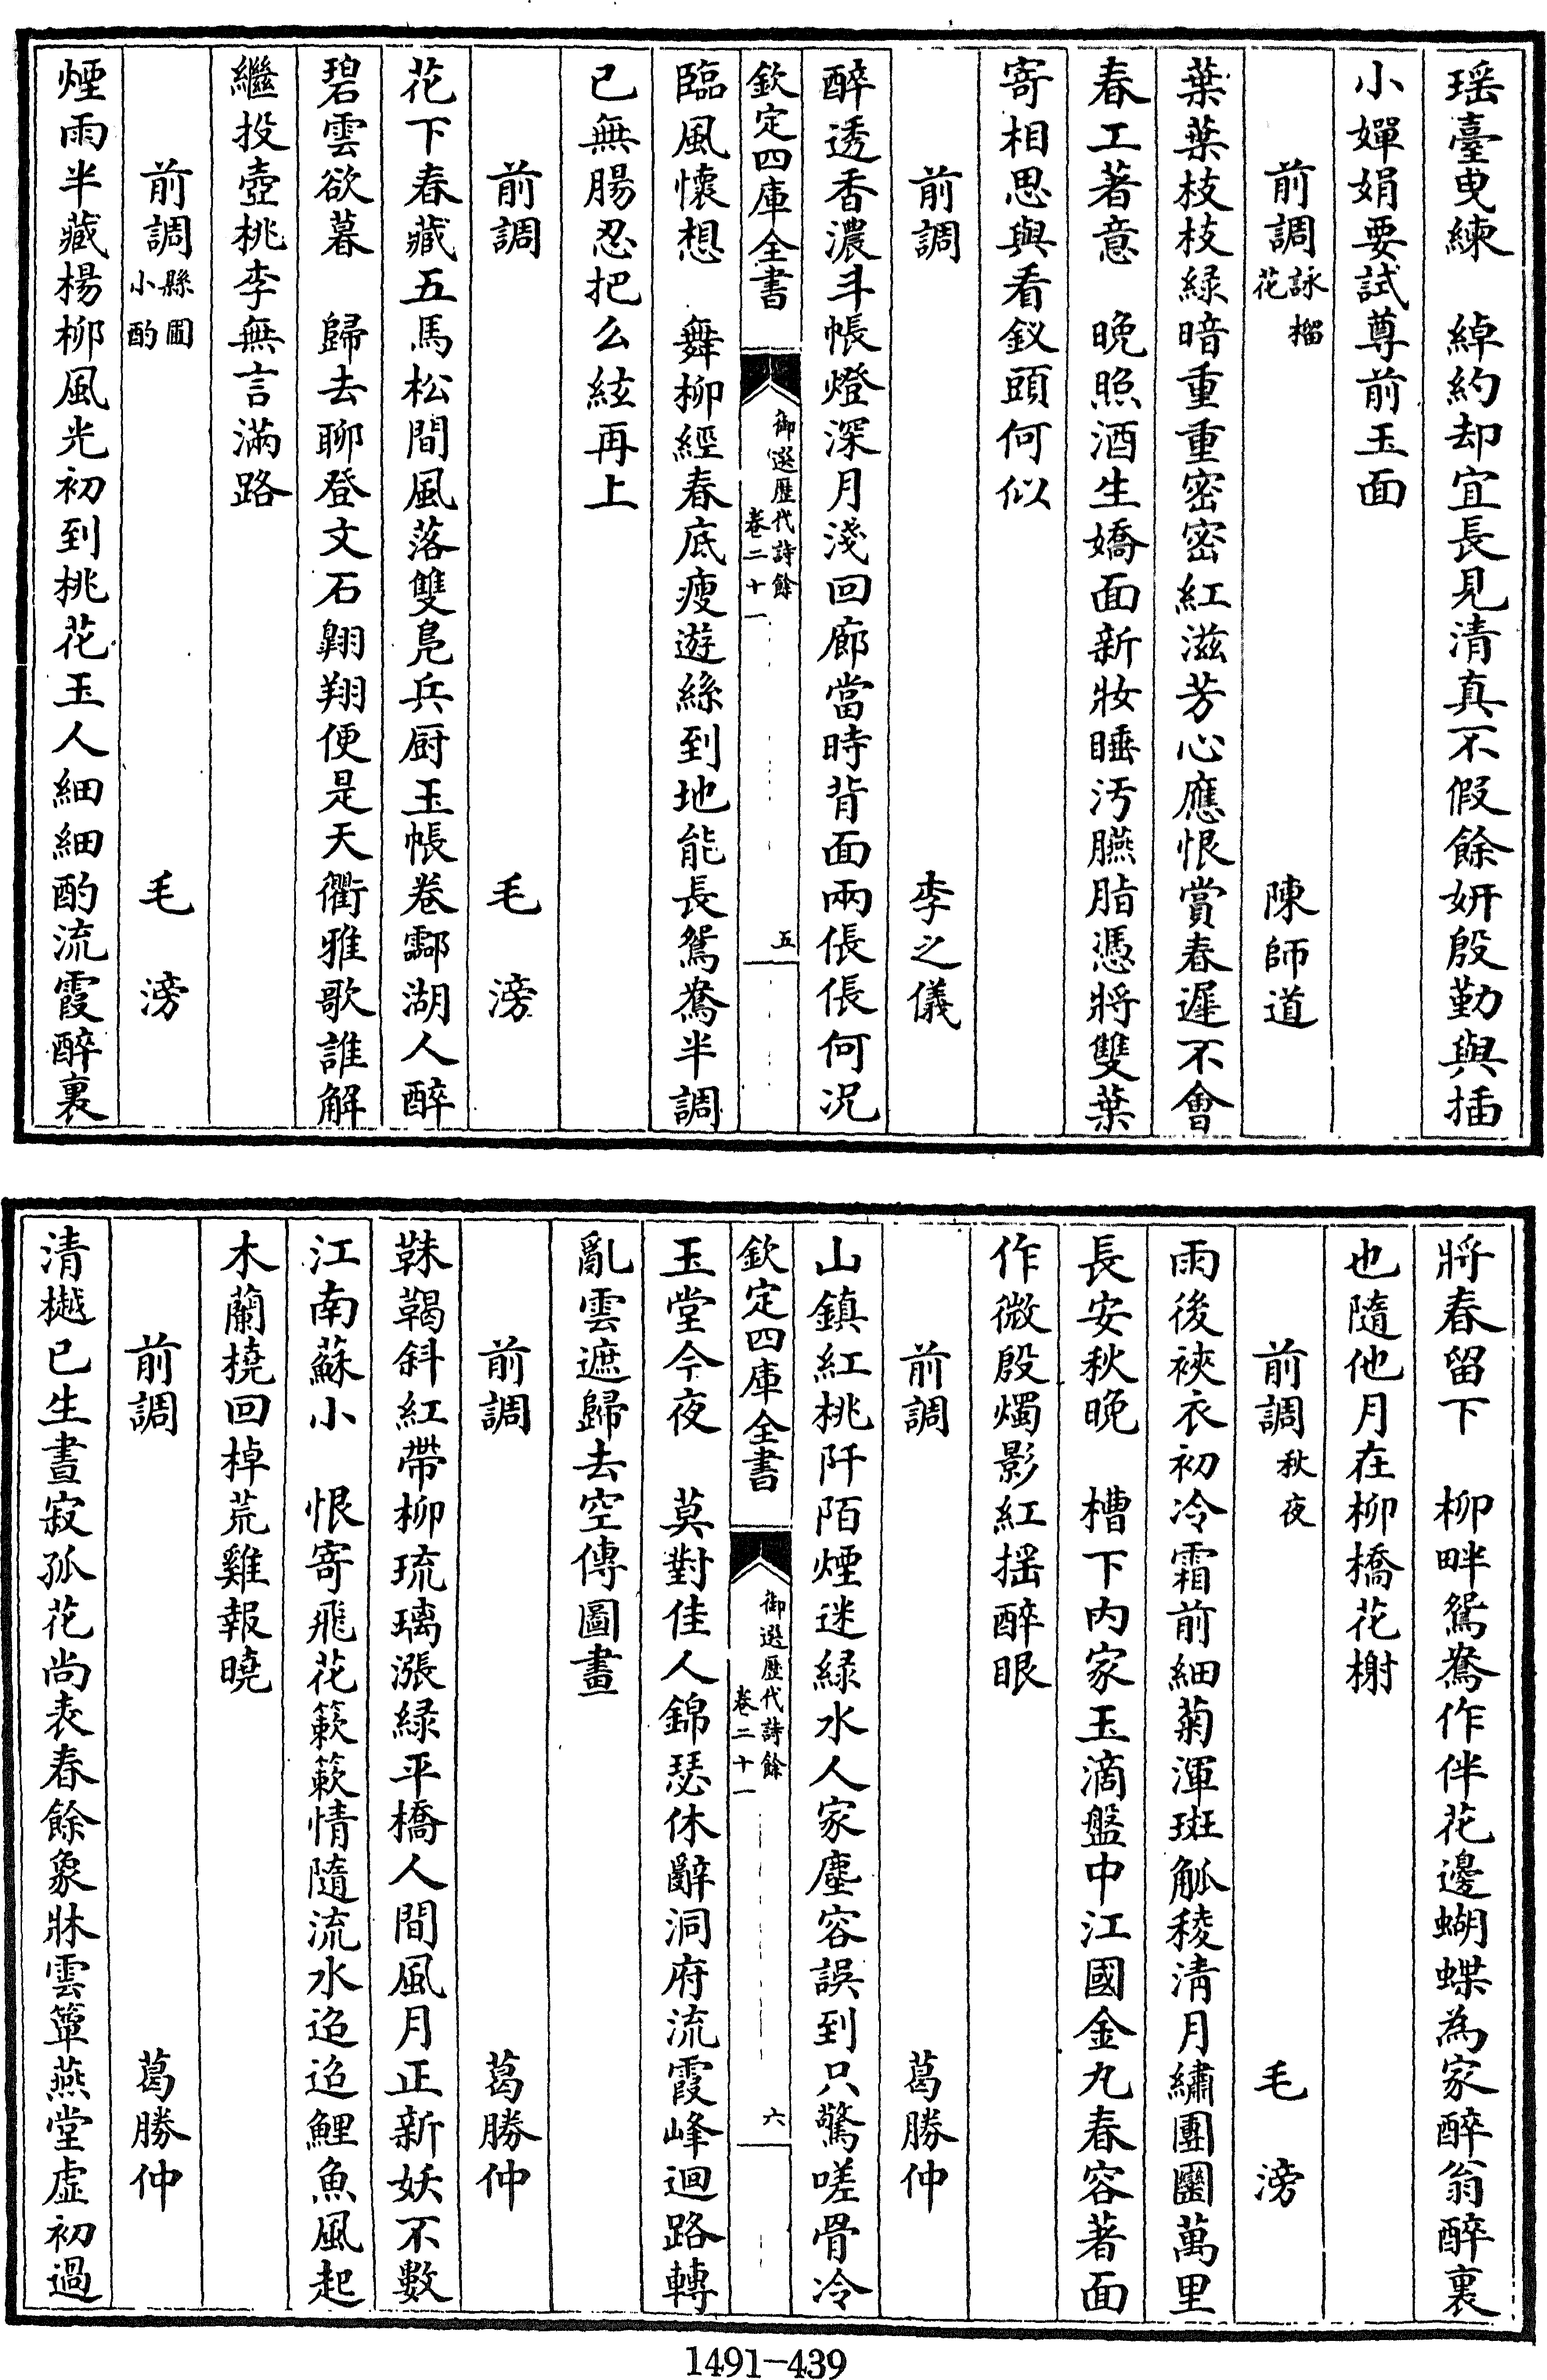 瑶臺曳練　綽約却宜長見清真不假餘妍殷勤與插
小嬋娟要試尊前玉面
前調詠榴花　陳師道
葉葉枝枝緑暗重重密密紅滋芳心應恨賞春遲不會
春工著意　晚照酒生嬌面新妝睡汚臙脂憑將雙葉
寄相思與看釵頭何似
前調　李之儀
醉透香濃斗帳燈深月淺回廊當時背面兩倀倀何况
欽定四庫全書　御選歷代詩餘卷二十一　五
臨風懷想　舞柳經春底瘦遊絲到地能長鴛鴦半調
已無腸忍把么絃再上
前調　毛滂
花下春藏五馬松間風落雙鳬兵厨玉帳卷酃湖人醉
碧雲欲暮　歸去聊登文石翺翔便是天衢雅歌誰解
繼投壺桃李無言滿路
前調縣圃小酌　毛滂
煙雨半藏楊柳風光初到桃花玉人細細酌流霞醉裏
將春留下　柳畔鴛鴦作伴花邊蝴蝶為家醉翁醉裏
也隨他月在柳橋花榭
前調秋夜　毛滂
雨後裌衣初冷霜前細菊渾斑觚稜清月繡團圞萬里
長安秋晚　槽下内家玉滴盤中江國金丸春容著面
作微殷燭影紅摇醉眼
前調　葛勝仲
山鎮紅桃阡陌煙迷緑水人家塵容誤到只驚嗟骨冷
欽定四庫全書　御選歷代詩餘卷二十一　六
玉堂今夜　莫對佳人錦瑟休辭洞府流霞峰迴路轉
亂雲遮歸去空傳圖畫
前調　葛勝仲
靺鞨斜紅帶柳琉璃漲緑平橋人間風月正新妖不數
江南蘇小　恨寄飛花簌簌情隨流水迢迢鯉魚風起
木蘭橈回棹荒雞報曉
前調　葛勝仲
清樾已生晝寂孤花尚表春餘象牀雲簟燕堂虚初過
1491-439